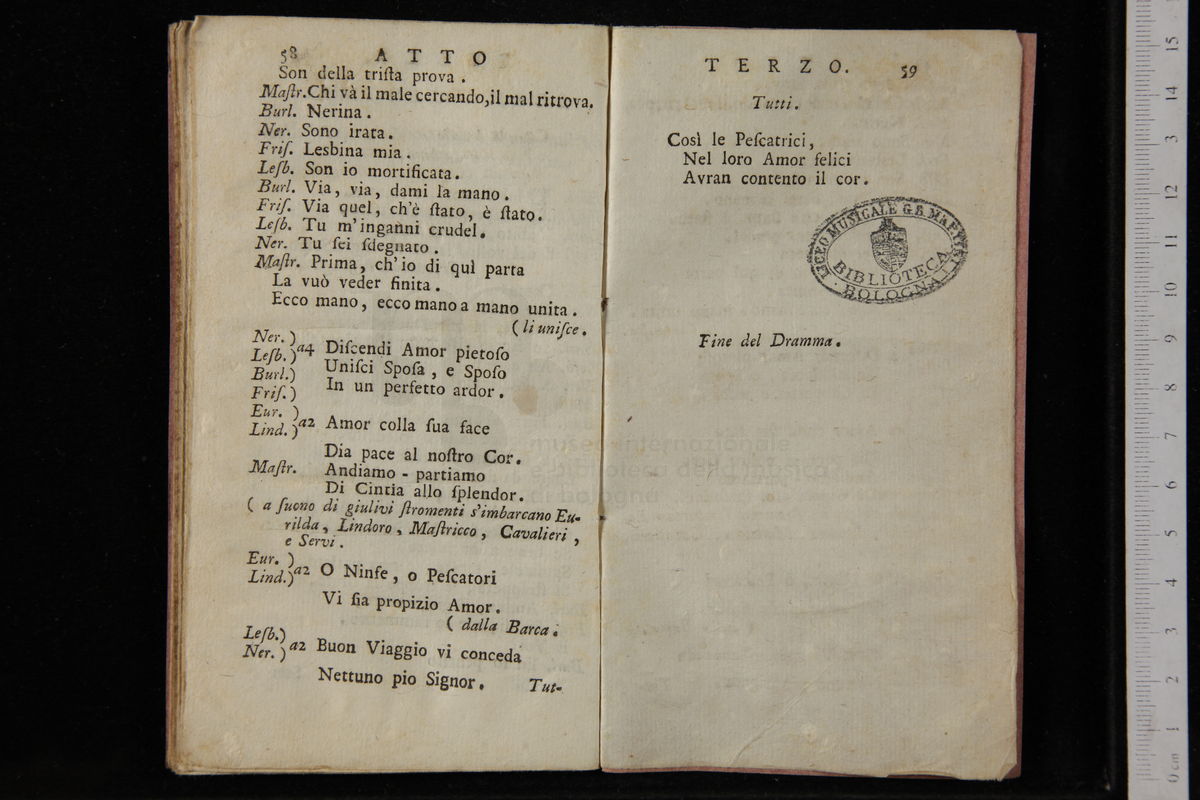 58 ATTO
Son della triſta prova.
Maſtr. Chi và il male cercando, il mal ritrova.
Burl. Nerina.
Ner. Sono irata.
Friſ. Lesbina mia.
Leſb. Son io mortificata.
Burl. Via, via, dami la mano.
Friſ. Via quel, ch'è ſtato, è ſtato.
Leſb. Tu m'inganni crudel.
Ner. Tu ſei ſdegnato.
Maſtr. Prima, ch'io di quì parta
La vuò veder finita.
Ecco mano, ecco mano a mano unita.
( li uniſce.
Ner. )
Leſb. ) a4 Diſcendi Amor pietoſo
Burl. ) Uniſci Spoſa, e Spoſo
Friſ. ) In un perfetto ardor.
Eur. )
Lind. ) a2 Amor colla ſua face
Dia pace al noſtro Cor.
Maſtr. Andiamo - partiamo
Di Cintia allo ſplendor.
( a ſuono di giulivi ſtromenti s'imbarcano Eu-
rilda, Lindoro, Maſtricco, Cavalieri,
e Servi.
Eur. )
Lind. ) a2 O Ninfe, o Peſcatori
Vi ſia propizio Amor.
( dalla Barca.
Leſb. )
Ner. ) a2 Buon Viaggio vi conceda
Nettuno pio Signor. Tut-
TERZO. 59
Tutti.
Così le Peſcatrici,
Nel loro Amor felici
Avran contento il cor.
LICEO MUSICALE G.B. MARTINI
BIBLIOTECA
BOLOGNA
Fine del Dramma.
museo internazionale
e biblioteca della musica
di bologna
0 cm 1 2 3 4 5 6 7 8 9 10 11 12 13 14 15